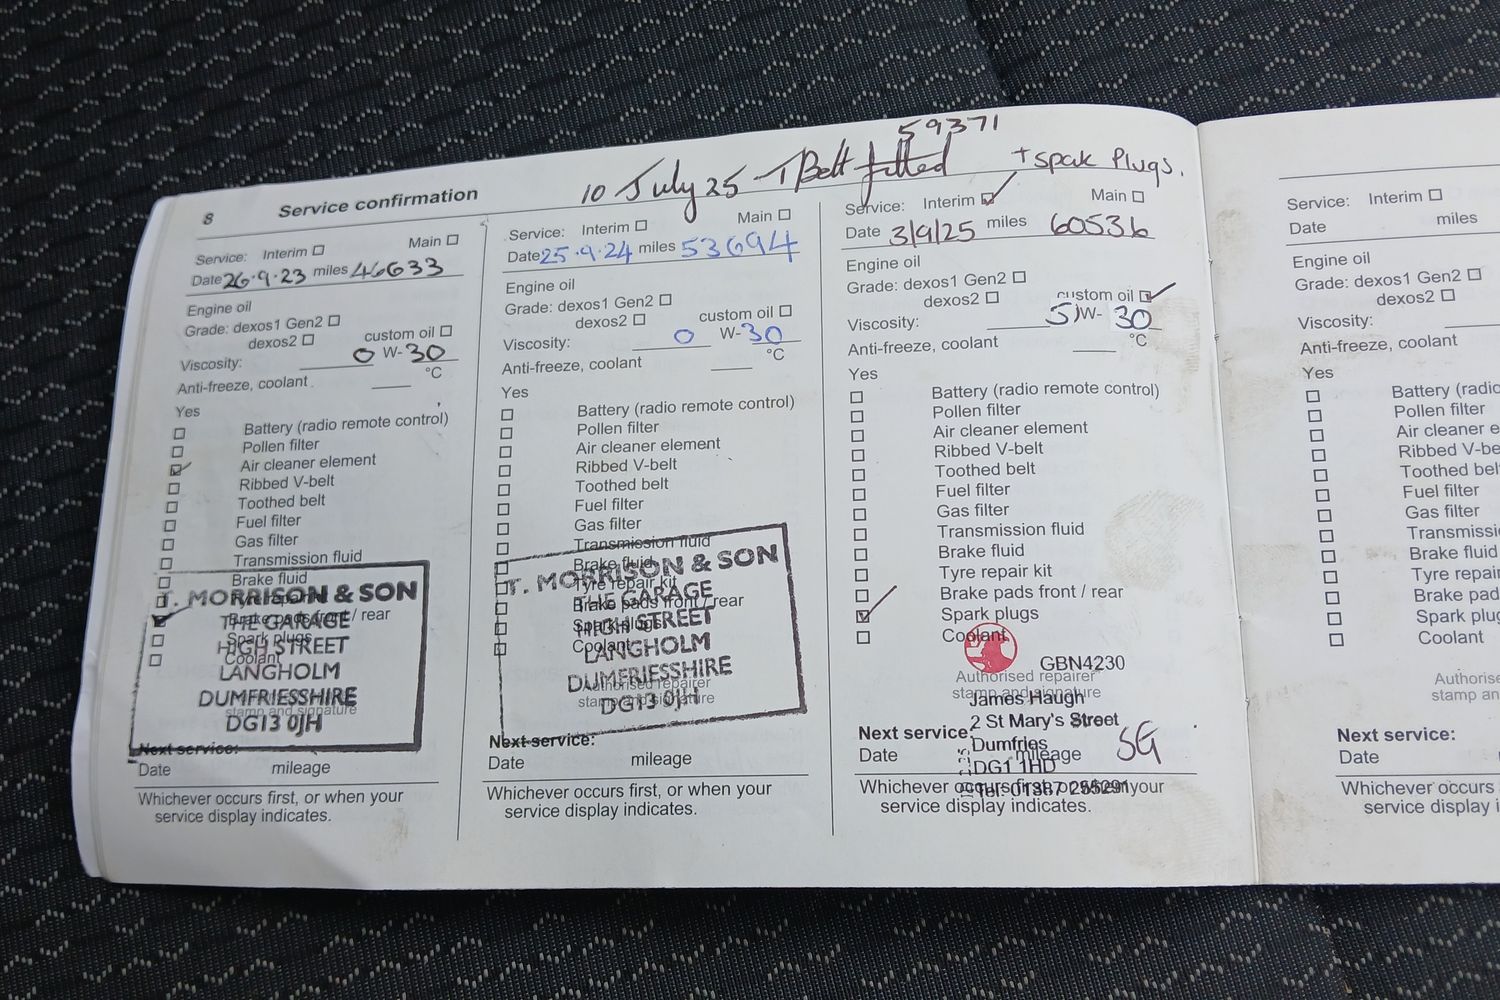 59371
10 July 25 T Belt fitted + Spak Plugs.
8 Service confirmation
Service: Interim Main
Date 26.9.23 miles 46633
Engine oil
Grade: dexos1 Gen2
dexos2 custom oil
Viscosity: 0 W-30
Anti-freeze, coolant °C
Yes
Battery (radio remote control)
Pollen filter
Air cleaner element
Ribbed V-belt
Toothed belt
Fuel filter
Gas filter
Transmission fluid
Brake fluid
Tyre repair kit
Brake pads front / rear
Spark plugs
Coolant
T. MORRISON & SON
THE GARAGE
HIGH STREET
LANGHOLM
DUMFRIESSHIRE
DG13 0JH
stamp and signature
Next service:
Date mileage
Whichever occurs first, or when your
service display indicates.
Service: Interim Main
Date 25.9.24 miles 53694
Engine oil
Grade: dexos1 Gen2
dexos2 custom oil
Viscosity: 0 W-30
Anti-freeze, coolant °C
Yes
Battery (radio remote control)
Pollen filter
Air cleaner element
Ribbed V-belt
Toothed belt
Fuel filter
Gas filter
Transmission fluid
Brake fluid
Tyre repair kit
Brake pads front / rear
Spark plugs
Coolant
T. MORRISON & SON
THE GARAGE
HIGH STREET
LANGHOLM
DUMFRIESSHIRE
DG13 0JH
Authorised repairer
stamp and signature
Next service:
Date mileage
Whichever occurs first, or when your
service display indicates.
Service: Interim Main
Date 3/9/25 miles 60536
Engine oil
Grade: dexos1 Gen2
dexos2 custom oil
Viscosity: 5 W- 30
Anti-freeze, coolant °C
Yes
Battery (radio remote control)
Pollen filter
Air cleaner element
Ribbed V-belt
Toothed belt
Fuel filter
Gas filter
Transmission fluid
Brake fluid
Tyre repair kit
Brake pads front / rear
Spark plugs
Coolant
GBN4230
Authorised repairer
stamp and signature
James Haugh
2 St Mary's Street
Dumfries
DG1 1HD
Tel: 01387 255291
SG
Next service:
Date mileage
Whichever occurs first, or when your
service display indicates.
Service: Interim
Date miles
Engine oil
Grade: dexos1 Gen2
dexos2
Viscosity:
Anti-freeze, coolant
Yes
Battery (radio
Pollen filter
Air cleaner e
Ribbed V-belt
Toothed belt
Fuel filter
Gas filter
Transmissi
Brake fluid
Tyre repair
Brake pad
Spark plug
Coolant
Authorise
stamp an
Next service:
Date
Whichever occurs
service display i